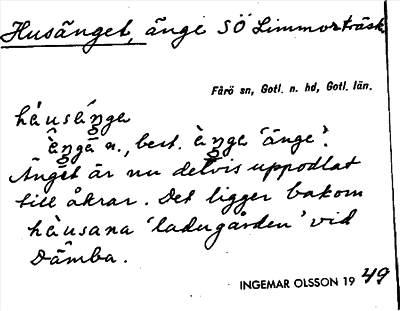 Husänget, änge SÖ Limmorträsk
Fårö sn, Gotl. n. hd, Gotl. län.
hàuslängä
ä̀ngä n., best. ä̀ngä 'änge'.
Änget är nu delvis uppodlat
till åkrar. Det ligger bakom
hàusana 'ladugården' vid
Dämba.
INGEMAR OLSSON 19 49